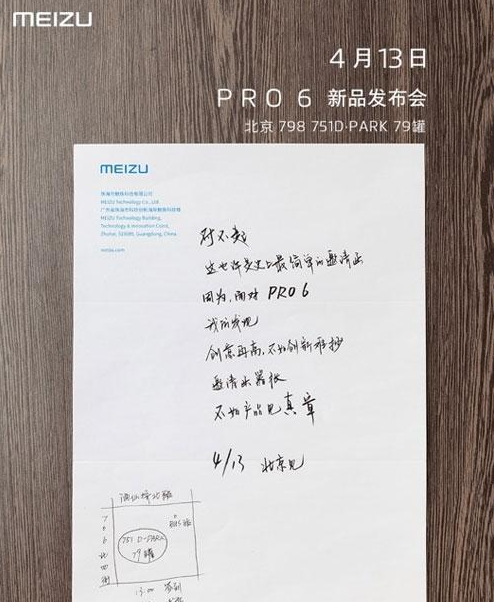 MEIZU
4月13日
PRO 6 新品发布会
北京 798 751D·PARK 79罐
MEIZU
珠海市魅族科技有限公司
MEIZU Technology Co., Ltd.
MEIZU Technology Building,
Technology & Innovation Coast,
Zhuhai, 519085, Guangdong, China.
meizu.com
对不起
这也许是史上最简单的邀请函
因为,面对 PRO 6
我们发现
创意再高,不如创新难抄
邀请函嚣张
不如产品见真章
4/13 北京见
酒仙桥北路
751 D-PARK
79罐
13:00 签到